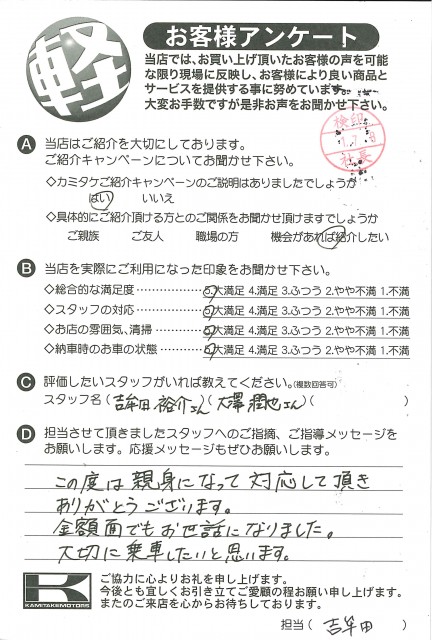 軽
お客様アンケート
当店では、お買い上げ頂いたお客様の声を可能
な限り現場に反映し、お客様により良い商品と
サービスを提供する事に努めています。
大変お手数ですが是非お声をお聞かせ下さい。
検印
社長
A 当店はご紹介を大切にしております。
ご紹介キャンペーンについてお聞かせ下さい。
◇カミタケご紹介キャンペーンのご説明はありましたでしょうか
はい いいえ
◇具体的にご紹介頂ける方とのご関係をお聞かせ頂けますでしょうか
ご親族 ご友人 職場の方 機会があれば紹介したい
B 当店を実際にご利用になった印象をお聞かせ下さい。
◇総合的な満足度 ……………… 5.大満足 4.満足 3.ふつう 2.やや不満 1.不満
◇スタッフの対応 ……………… 5.大満足 4.満足 3.ふつう 2.やや不満 1.不満
◇お店の雰囲気、清掃 ………… 5.大満足 4.満足 3.ふつう 2.やや不満 1.不満
◇納車時のお車の状態 ………… 5.大満足 4.満足 3.ふつう 2.やや不満 1.不満
C 評価したいスタッフがいれば教えてください。(複数回答可)
スタッフ名 (吉牟田裕介さん) (大澤潤也さん) ( )
D 担当させて頂きましたスタッフへのご指摘、ご指導メッセージを
お願いします。応援メッセージもぜひお願いします。
この度は親身になって対応して頂き
ありがとうございます。
金額面でもお世話になりました。
大切に乗車したいと思います。
K
KAMITAKE MOTORS
ご協力に心よりお礼を申し上げます。
今後とも宜しくお引き立てご愛顧の程お願い申し上げます。
またのご来店を心からお待ちしております。
担当 ( 吉牟田 )